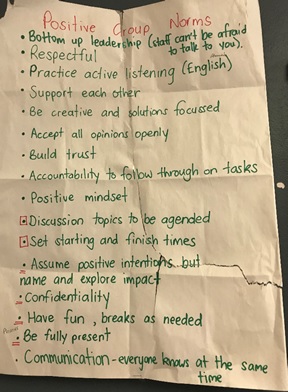 Positive Group Norms
• Bottom up leadership (staff can't be afraid
to talk to you).
• Respectful
• Practice active listening (English)
• Support each other
• Be creative and solutions focussed
• Accept all opinions openly
• Build trust
• Accountability to follow through on tasks
• Positive mindset
Discussion topics to be agended
Set starting and finish times
• Assume positive intentions but
name and explore impact
• Confidentiality
• Have fun, breaks as needed
• Be fully present
• Communication - everyone knows at the same
time